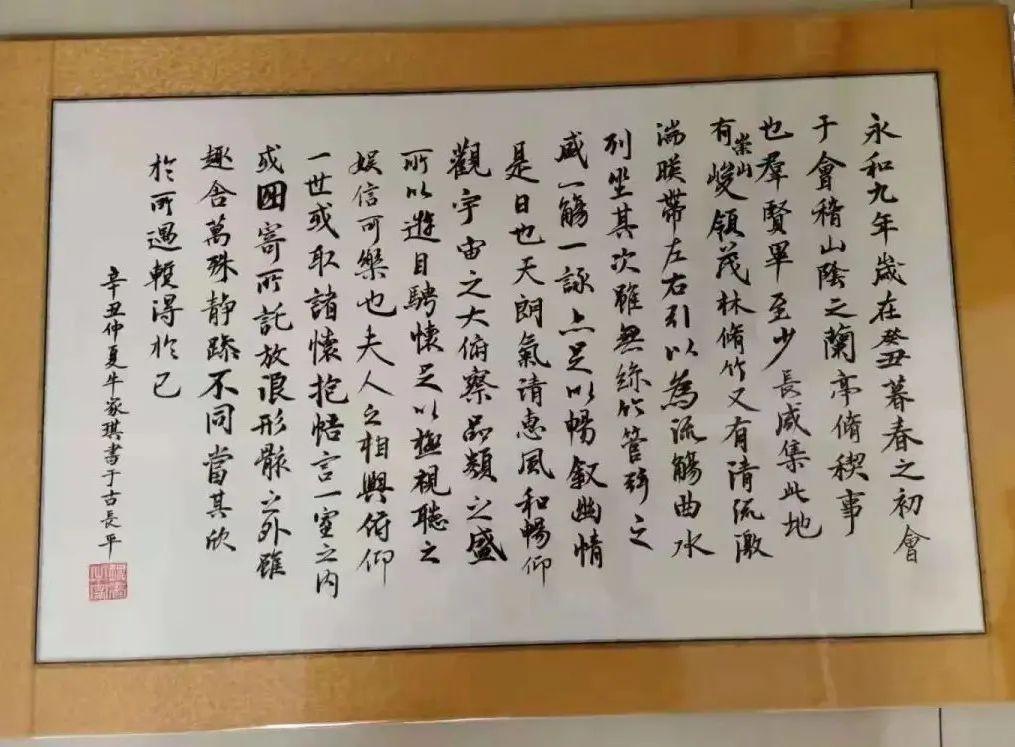 永和九年歲在癸丑暮春之初會
于會稽山陰之蘭亭脩稧事
也羣賢畢至少長咸集此地
有崇山峻領茂林脩竹又有清流激
湍暎帶左右引以為流觴曲水
列坐其次雖無絲竹管弦之
盛一觴一詠亦足以暢叙幽情
是日也天朗氣清惠風和暢仰
觀宇宙之大俯察品類之盛
所以遊目騁懷足以極視聽之
娱信可樂也夫人之相與俯仰
一世或取諸懷抱悟言一室之内
或因寄所託放浪形骸之外雖
趣舍萬殊静躁不同當其欣
於所遇輕得於己
辛丑仲夏牛家琪書于古長平